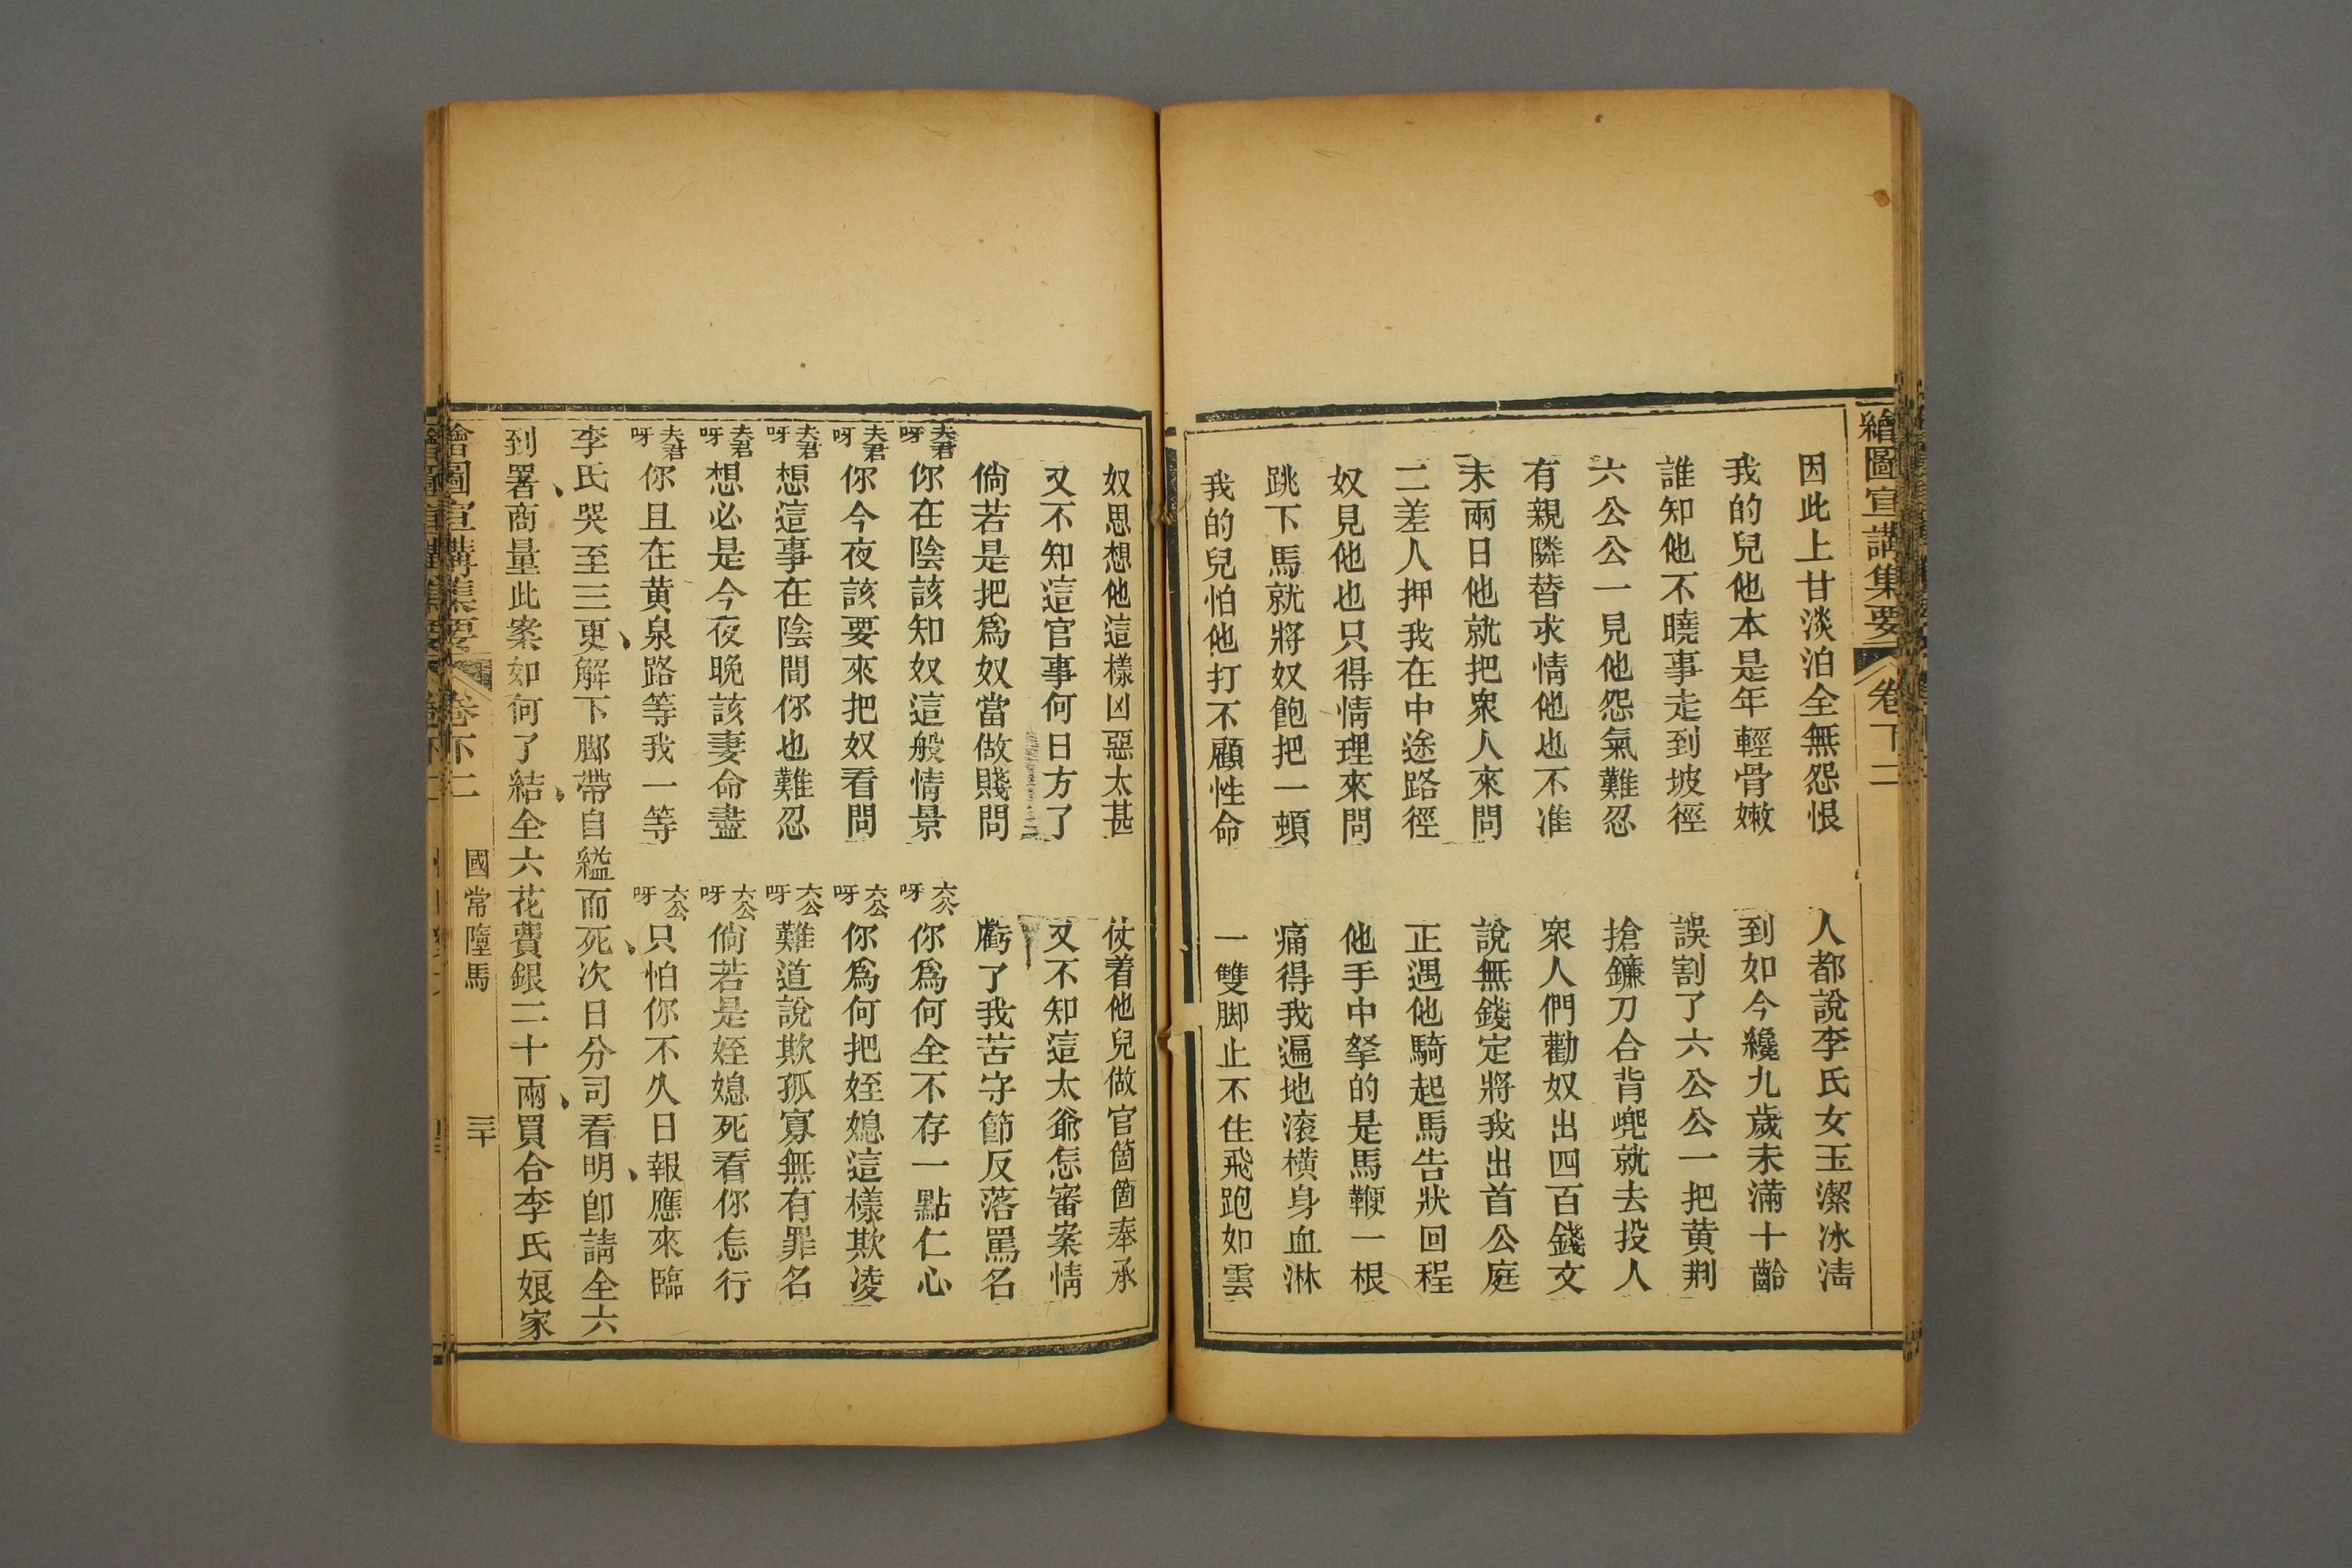 繪圖宣講集要 卷下二
因此上甘淡泊全無怨恨 人都說李氏女玉潔冰清
我的兒他本是年輕骨嫩 到如今纔九歲未滿十齡
誰知他不曉事走到坡徑 誤割了六公公一把黄荆
六公公一見他怨氣難忍 搶鐮刀合背兠就去投人
有親隣替求情他也不准 衆人們勸奴出四百錢文
未兩日他就把衆人來問 說無錢定將我出首公庭
二差人押我在中途路徑 正遇他騎起馬告狀回程
奴見他也只得情理來問 他手中拏的是馬鞭一根
跳下馬就將奴飽把一頓 痛得我遍地滚橫身血淋
我的兒怕他打不顧性命 一雙脚止不住飛跑如雲
奴思想他這樣凶惡太甚 仗着他兒做官箇箇奉承
又不知這官事何日方了 又不知這太爺怎審案情
倘若是把爲奴當做賤問 虧了我苦守節反落罵名
夫君呀你在陰該知奴這般情景 六公呀你爲何全不存一點仁心
夫君呀你今夜該要來把奴看問 六公呀你爲何把姪媳這樣欺凌
夫君呀想這事在陰間你也難忍 六公呀難道說欺孤寡無有罪名
夫君呀想必是今夜晚該妻命盡 六公呀倘若是姪媳死看你怎行
夫君呀你且在黄泉路等我一等 六公呀只怕你不久日報應來臨
李氏哭至三更、解下脚帶自縊而死、次日分司看明、卽請全六
到署、商量此案如何了結、全六花費銀二十兩、買合李氏娘家
繪圖宣講集要 卷下二 國常墮馬 三十